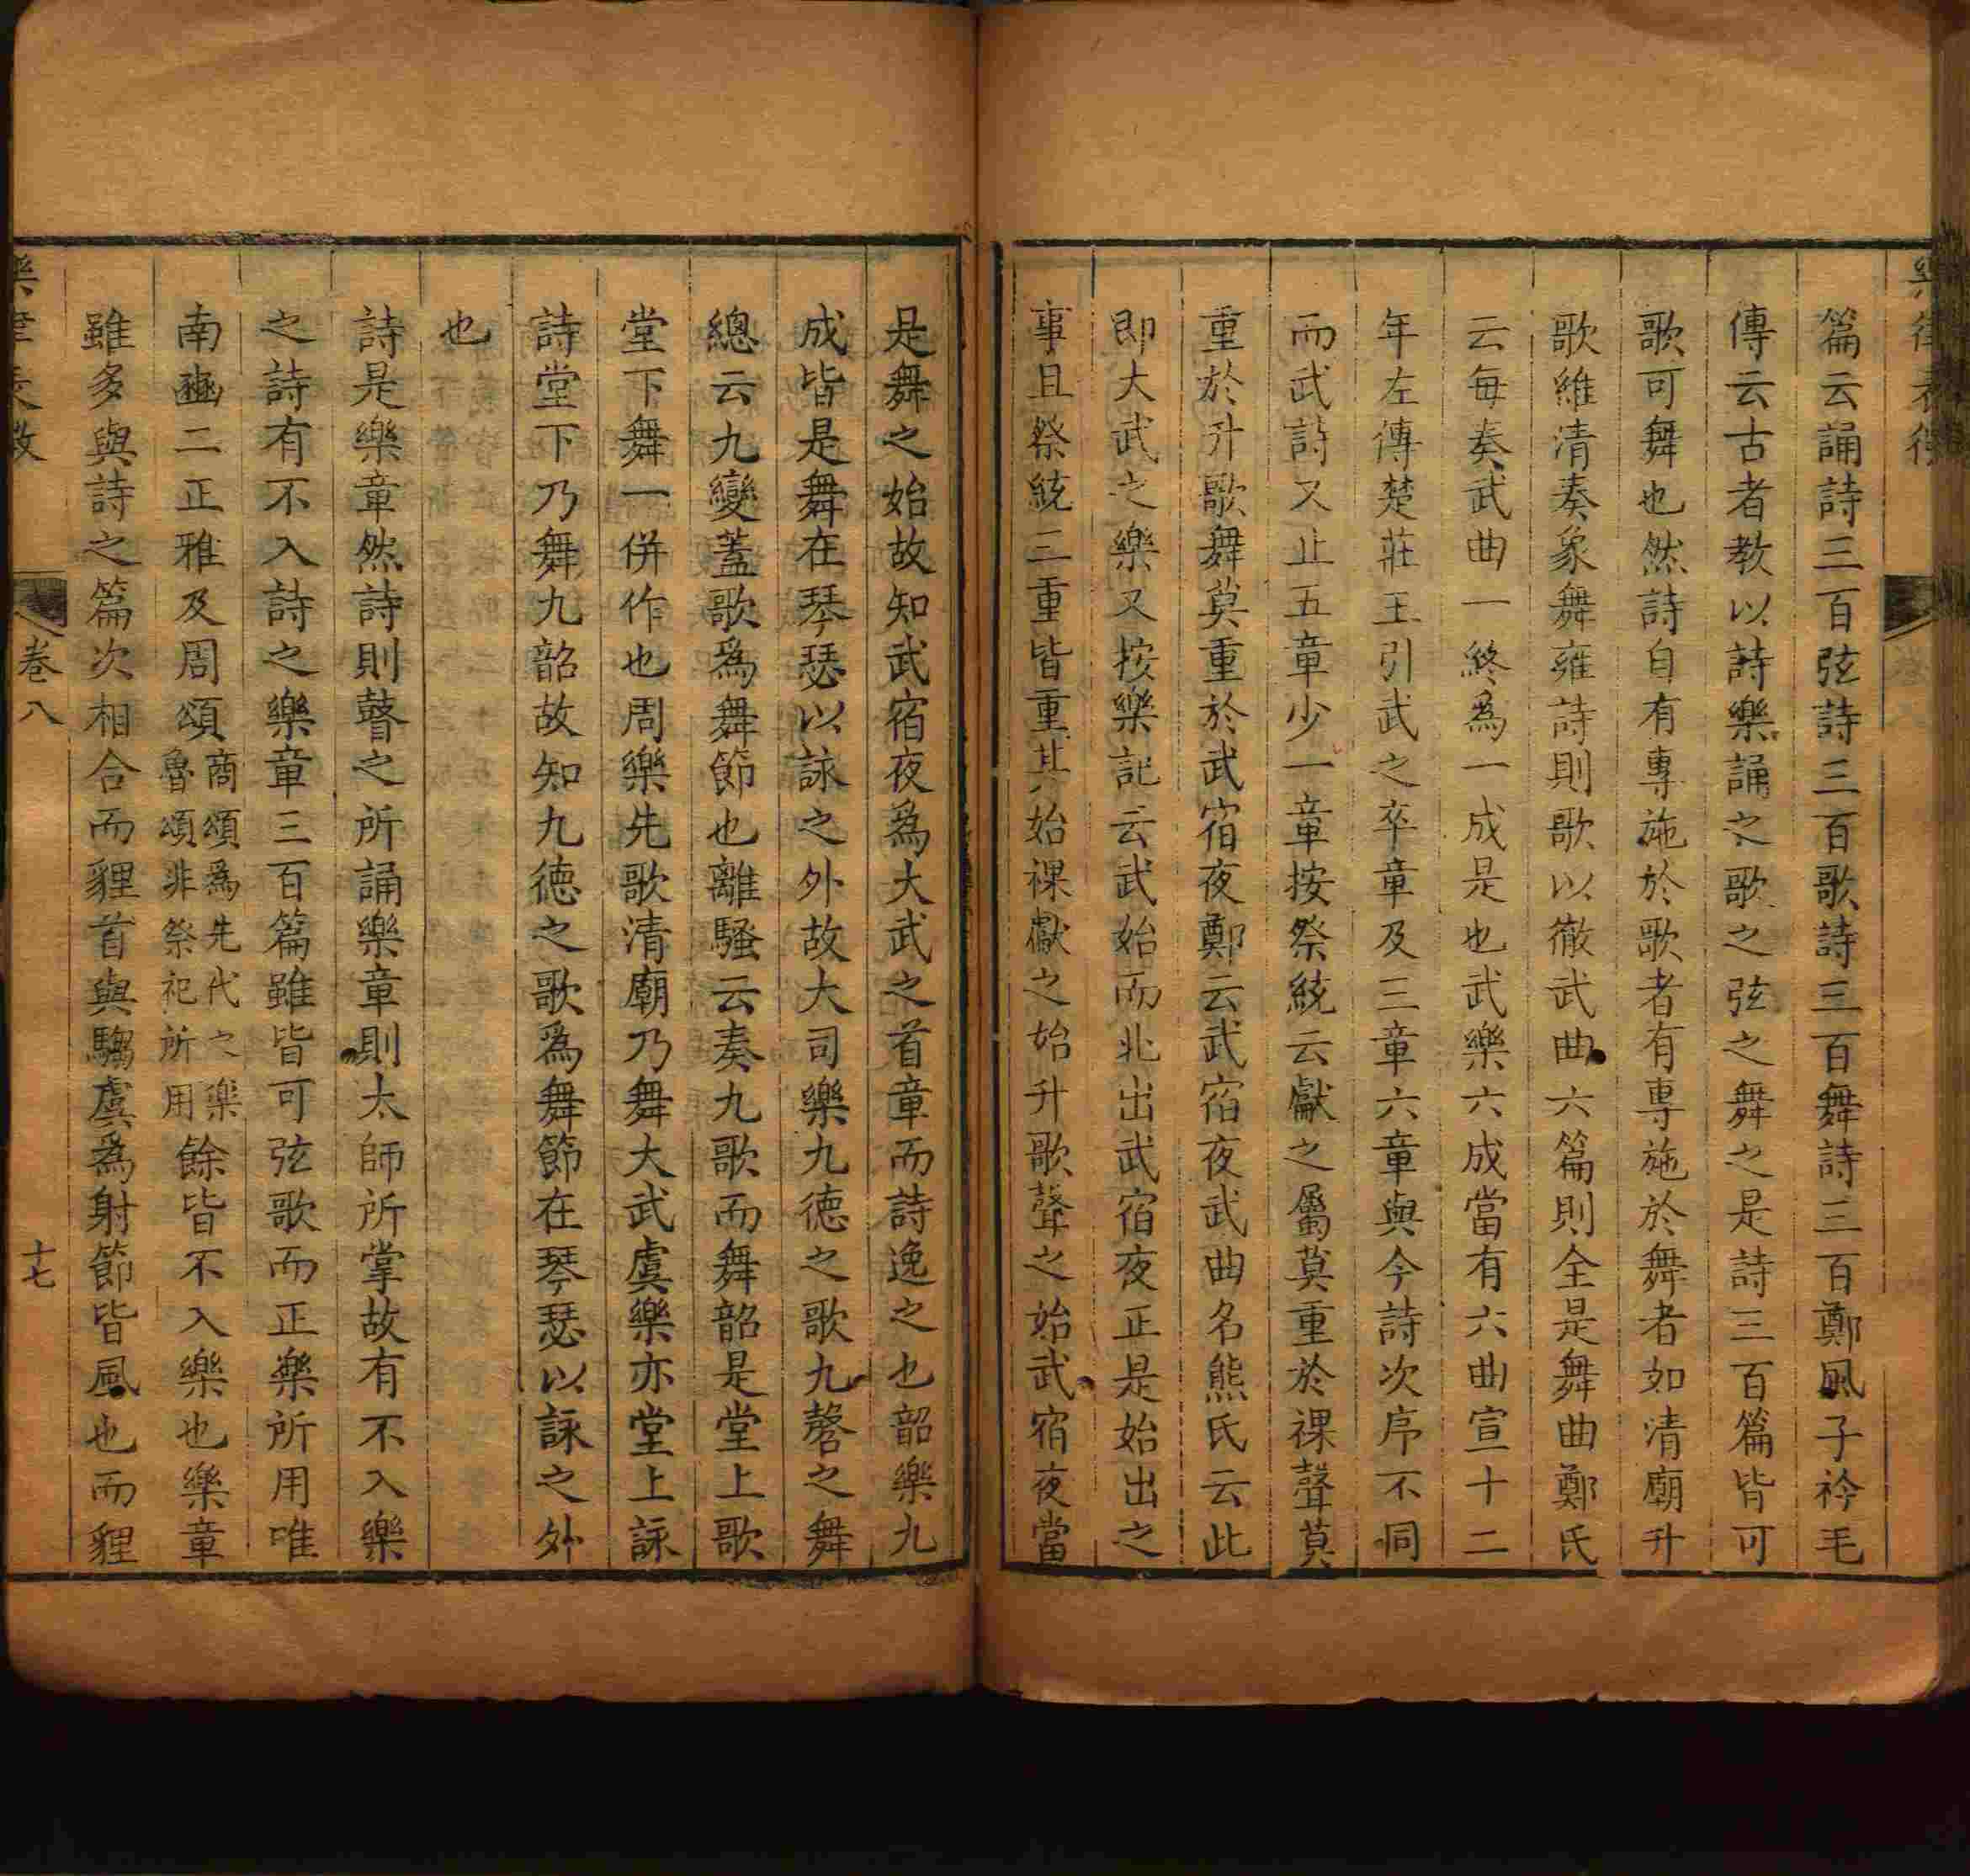 篇云誦詩三百弦詩三百歌詩三百舞詩三百鄭風子衿毛
傳云古者教以詩樂誦之歌之弦之舞之是詩三百篇皆可
歌可舞也然詩自有專施於歌者有專施於舞者如清廟升
歌維清奏象舞雍詩則歌以徹武曲六篇則全是舞曲鄭氏
云每奏武曲一終為一成是也武樂六成當有六曲宣十二
年左傳楚莊王引武之卒章及三章六章與今詩次序不同
而武詩又止五章少一章按祭統云獻之屬莫重於祼聲莫
重於升歌舞莫重於武宿夜鄭云武宿夜武曲名熊氏云此
即大武之樂又按樂記云武始而北出武宿夜正是始出之
事且祭統三重皆重其始祼獻之始升歌聲之始武宿夜當
是舞之始故知武宿夜為大武之首章而詩逸之也韶樂九
成皆是舞在琴瑟以詠之外故大司樂九德之歌九磬之舞
總云九變蓋歌為舞節也離騷云奏九歌而舞韶是堂上歌
堂下舞一併作也周樂先歌清廟乃舞大武虞樂亦堂上詠
詩堂下乃舞九韶故知九德之歌為舞節在琴瑟以詠之外
也
詩是樂章然詩則瞽之所誦樂章則太師所掌故有不入樂
之詩有不入詩之樂章三百篇雖皆可弦歌而正樂所用唯
南豳二正雅及周頌商頌為先代之樂魯頌非祭祀所用餘皆不入樂也樂章
雖多與詩之篇次相合而貍首與騶虞為射節皆風也而貍
卷八
十七